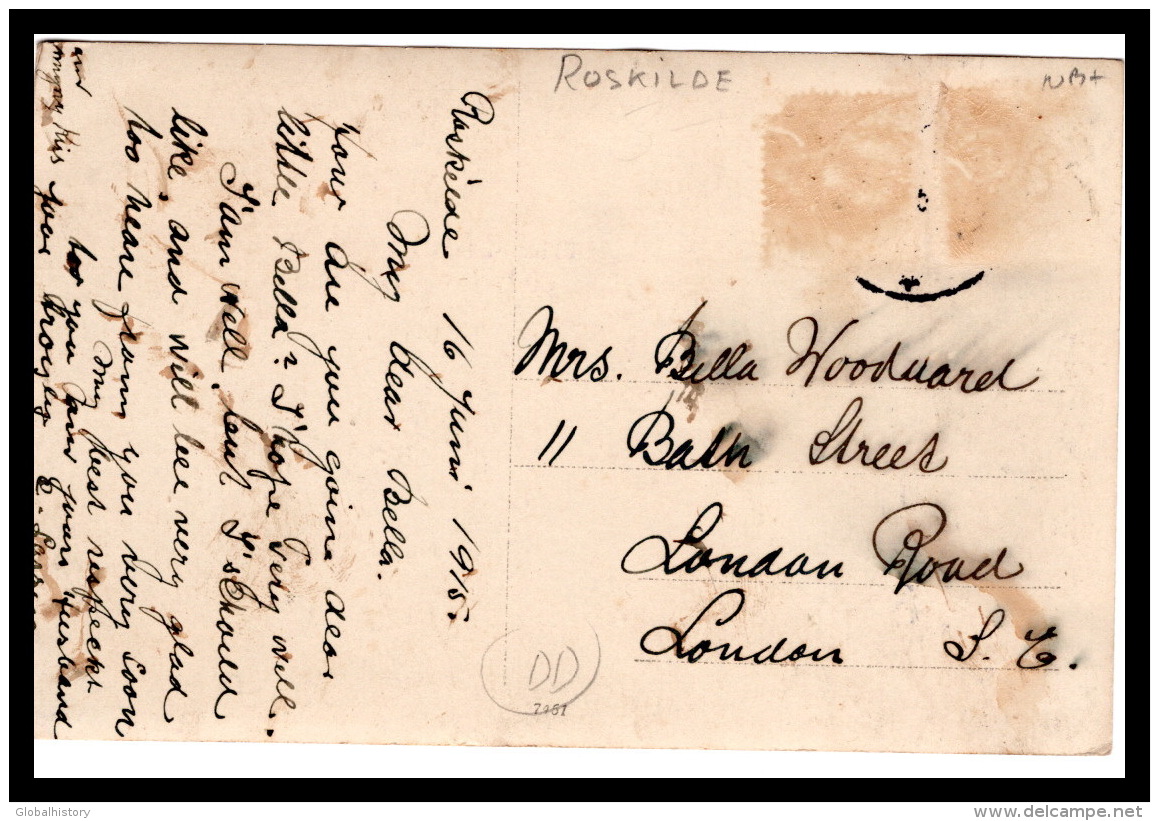 ROSKILDE
Roskilde 16 Juni 1915.
My dear Bella.
Hour are you goine dear
little Bella? I'hope Tedy well.
I'am well, but I'schould
like, and will bee very glad
too heare fram you very soon
my best respeckt
too you and youri husband
and
Kis for
E.
Mrs. Bella Woodward
11 Bath Street
London Road
London S. E.
DD
7161
Globalhistory
delcampe.net